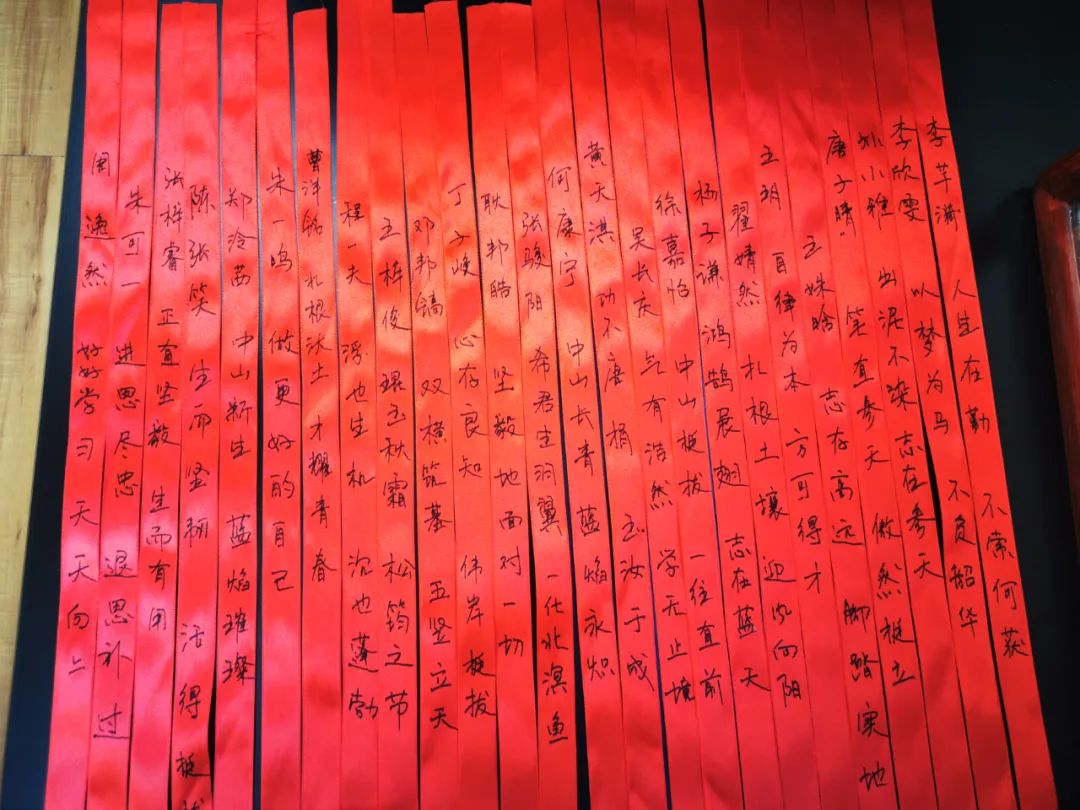 李芊漪 人生在勤 不索何获
李欣雯 以梦为马 不负韶华
孙小雅 出泥不染志在参天
唐子晴 笔直参天 傲然挺立
王姝晗 志存高远 脚踏实地
王玥 自律为本 方可得才
翟婧然 扎根土壤 迎风向阳
杨子谦 鸿鹄展翅 志在蓝天
徐嘉怡 中山挺拔 一往直前
吴长庆 气有浩然 学无止境
黄天淇 功不唐捐 玉汝于成
何康宁 中山长青 蓝焰永炽
张骏阳 希君生羽翼 一化北溟鱼
耿邦皓 坚毅地面对一切
丁子峻 心存良知 伟岸挺拔
邓邦镐 双横筑基 五竖立天
王梓俊 琨玉秋霜 松筠之节
程一夫 浮也生机 沉也蓬勃
曹洋铭 扎根沃土 才耀青春
朱一鸣 做更好的自己
郑泠茜 中山新生 蓝焰璀璨
陈张笑 生而坚韧 活得挺拔
张梓睿 正直坚毅 生而有用
朱可一 进思尽忠 退思补过
周逸然 好好学习 天天向上